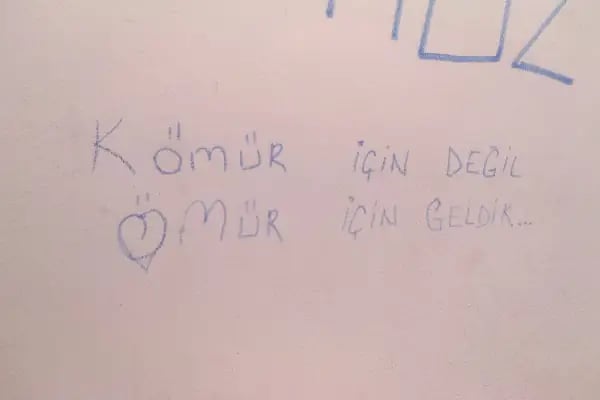 KÖMÜR İÇİN DEĞİL
ÖMÜR İÇİN GELDİK...